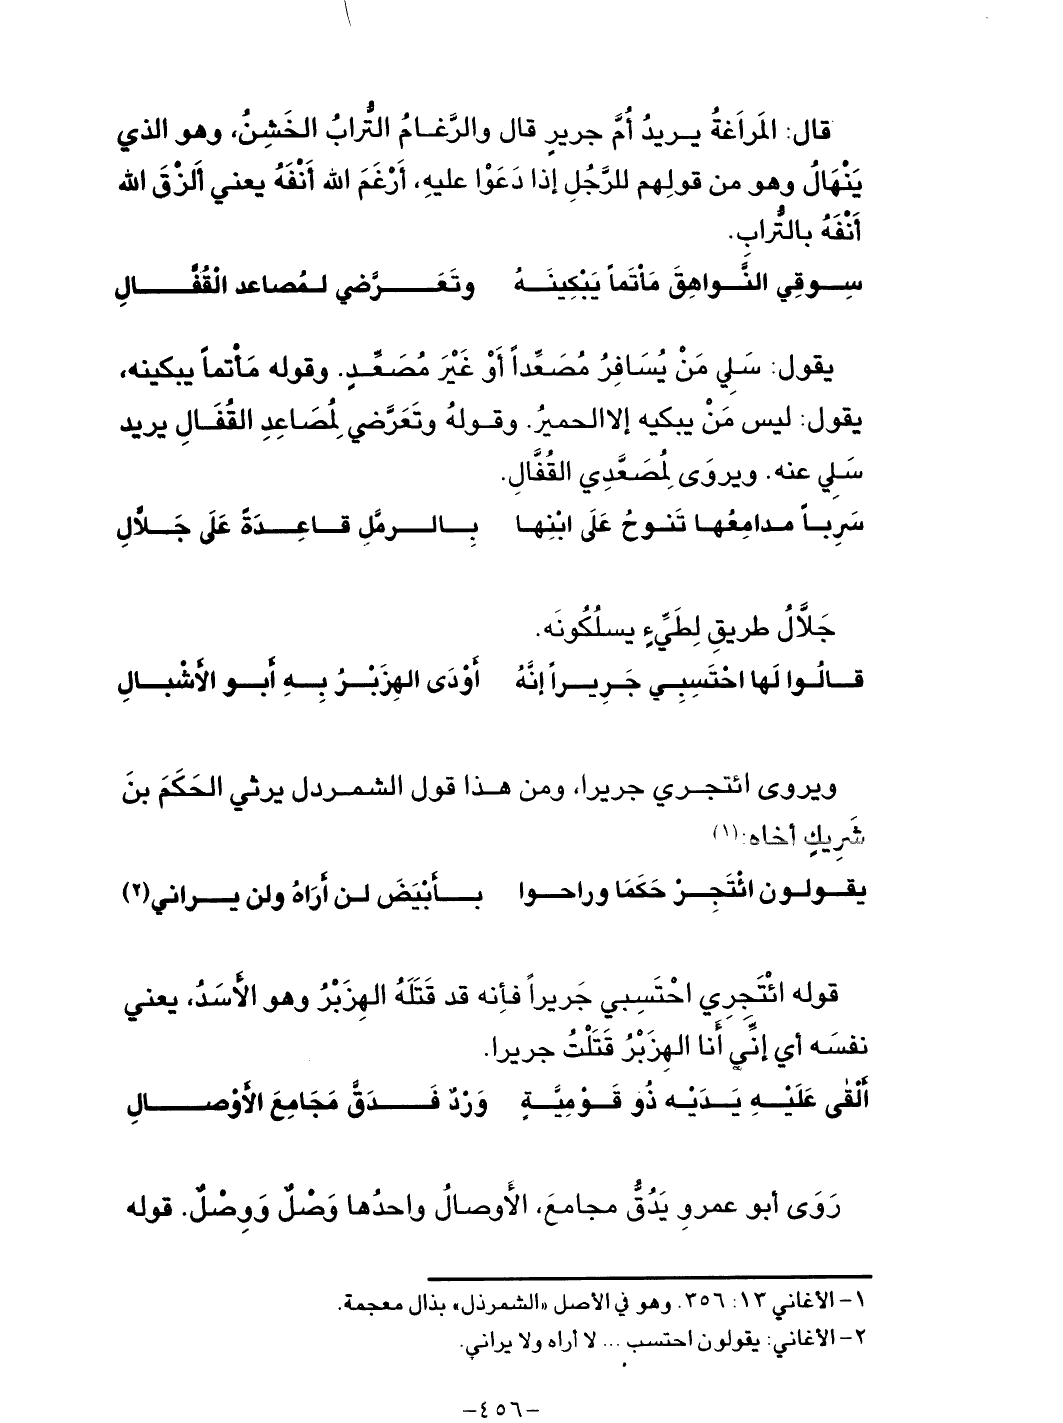 قال: المَراَغةُ يـريدُ أُمَّ جريرٍ قال والرَّغـامُ التُّرابُ الخَشِنُ، وهو الذي
يَنْهَالُ وهو من قولِهم للرَّجُلِ إذا دَعَوْا عليه، أَرْغَمَ الله أنْفَهُ يعني ألزْقَ الله
أَنْفَهُ بالتُّرابِ.
سِــوقِي النَّــواهِقَ مَأتَماً يَبْكِينَــهُ وتَعَــــرَّضي لـمُصاعد الْقُفَّـــــالِ
يقول: سَلِي مَنْ يُسَافِرُ مُصَعِّداً أوْ غَيْرَ مُصَعَّـدٍ. وقوله مَأْتماً يبكينه،
يقول: ليس مَنْ يبكيه إلاالحميرُ. وقـولهُ وتَعَرَّضي لِمُصَاعِدِ القُفَالِ يريد
سَلِي عنه. ويروَى لِمُصَعَّدِي القُفَّالِ.
سَرِبـاً مـدامِعُهـا تَنـوحُ عَلَى ابْنِهـا بِـالــرمَّلِ قـاعِــدَةً عَلَى جَـلاَّلِ
جَلاَّلُ طريقٍ لِطَيِّءٍ يسلُكُونَه.
قــالُـوا لَها احْتَسِبِـي جَـرِيـراً إنَّهُ أَوْدَى الهِزَبْــرُ بِــهِ أَبــو الأَشْبــالِ
ويروى ائتجـري جريرا، ومن هـذا قول الشمـردل يرثي الحَكَمَ بنَ
شَرِيكٍ أخاه:(١)
يقـولـون ائْتَجِــرْ حَكَمَا وراحـوا بــأَبْيَضَ لـن أَرَاهُ ولن يــراني(٢)
قوله ائْتَجِرِي احْتَسِبي جَريراً فأِنه قد قَتَلَهُ الهِزَبْرُ وهو الأَسَدُ، يعني
نفسَه أي إنِّي أَنا الهِزَبْرُ قَتَلْتُ جريرا.
أَلْقَى عَلَيْــهِ يَـدَيْـه ذُو قَـوْمِيَّــةٍ وَرْدٌ فَــــدَقَّ مَجَامِعَ الأَوْصـــــالِ
رَوَى أبو عمروِ يَدُقُّ مجامعَ، الأَوصالُ واحدُها وَصْلٌ وَوِصْلٌ. قوله
١- الأغاني ١٣: ٣٥٦. وهو في الأصل «الشمرذل» بذال معجمة.
٢- الأغاني: يقولون احتسب ... لا أراه ولا يراني.
-٤٥٦-